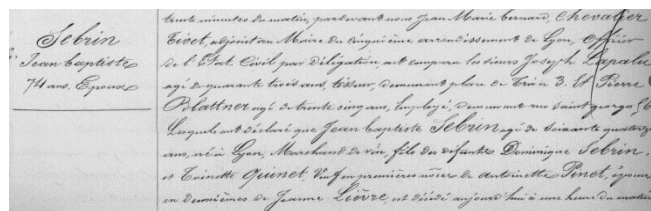 Sebrin
Jean Baptiste
74 ans. Epoux
trente minutes du matin, pardevant nous Jean Marie Bernard, Chevalier
adjoint au Maire du Cinquième arrondissement de Lyon, Officier
de l'Etat Civil par délégation, ont comparu les sieurs Joseph Lapalu
agé de quarante trois ans, tisseur, demeurant place de Trion 3. Et Pierre
Blattner agé de trente cinq ans, Employé, demeurant rue Saint George
Lesquels ont déclaré que Jean Baptiste Sebrin agé de Soixante quatorze
ans, né à Lyon, Marchand de vin, fils des défunts Dominique Sebrin
et Toinette Quinet, Veuf en premières noces de Antoinette Pinet, époux
en deuxièmes de Jeanne Lièvre, est décédé aujourd'hui à une heure du matin